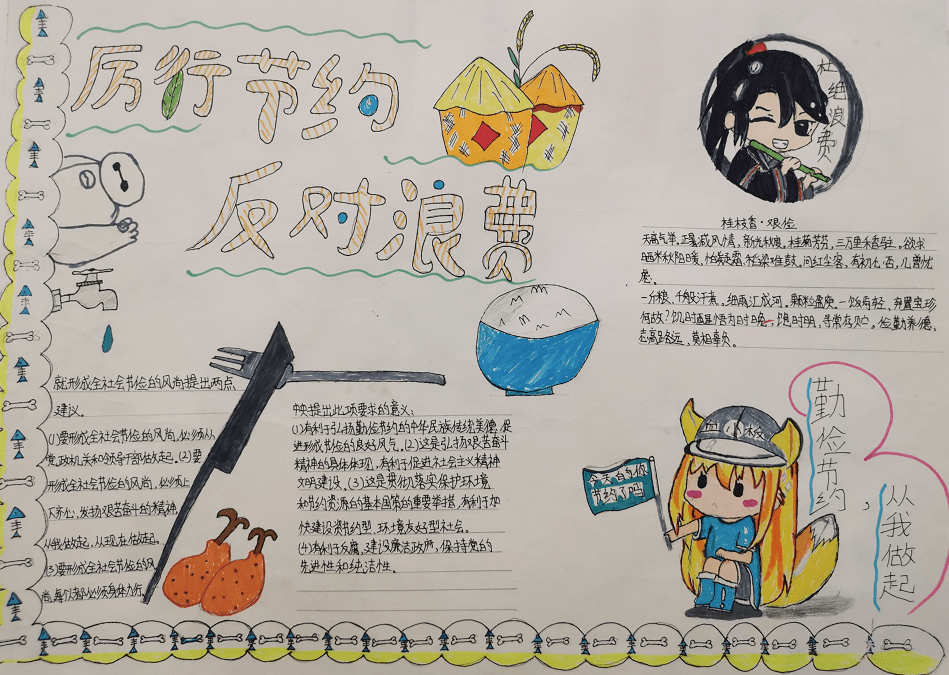 厉行节约
反对浪费
杜绝浪费
桂枝香·艰俭
一分粮、千般汗煮。细雨汇成河。颗粒盈庾。一饭両轻、弃置宝珍
志高路远，莫相辜负。
就形成全社会节俭的风尚提出两点
建议。
(1)要形成全社会节俭的风尚，必须从
党政机关和领导干部做起。(2)要
形成全社会节俭的风尚，必须上
下齐心，发扬艰苦奋斗的精神，
从我做起，从现在做起。
(3)要形成全社会节俭的风
尚，每个人都必须身体力行。
中央提出此项要求的意义：
(1)有利于弘扬勤俭节约的中华民族传统美德，促
进形成节俭的良好风气。(2)这是弘扬艰苦奋斗
精神的具体体现，有利于促进社会主义精神
文明建设。(3)这是贯彻落实保护环境
和节约资源的基本国策的重要举措，有利于加
快建设资源节约型、环境友好型社会。
(4)有利于反腐，建设廉洁政府，保持党的
先进性和纯洁性。
今天的你
节约了吗
勤俭节约，
从我做起